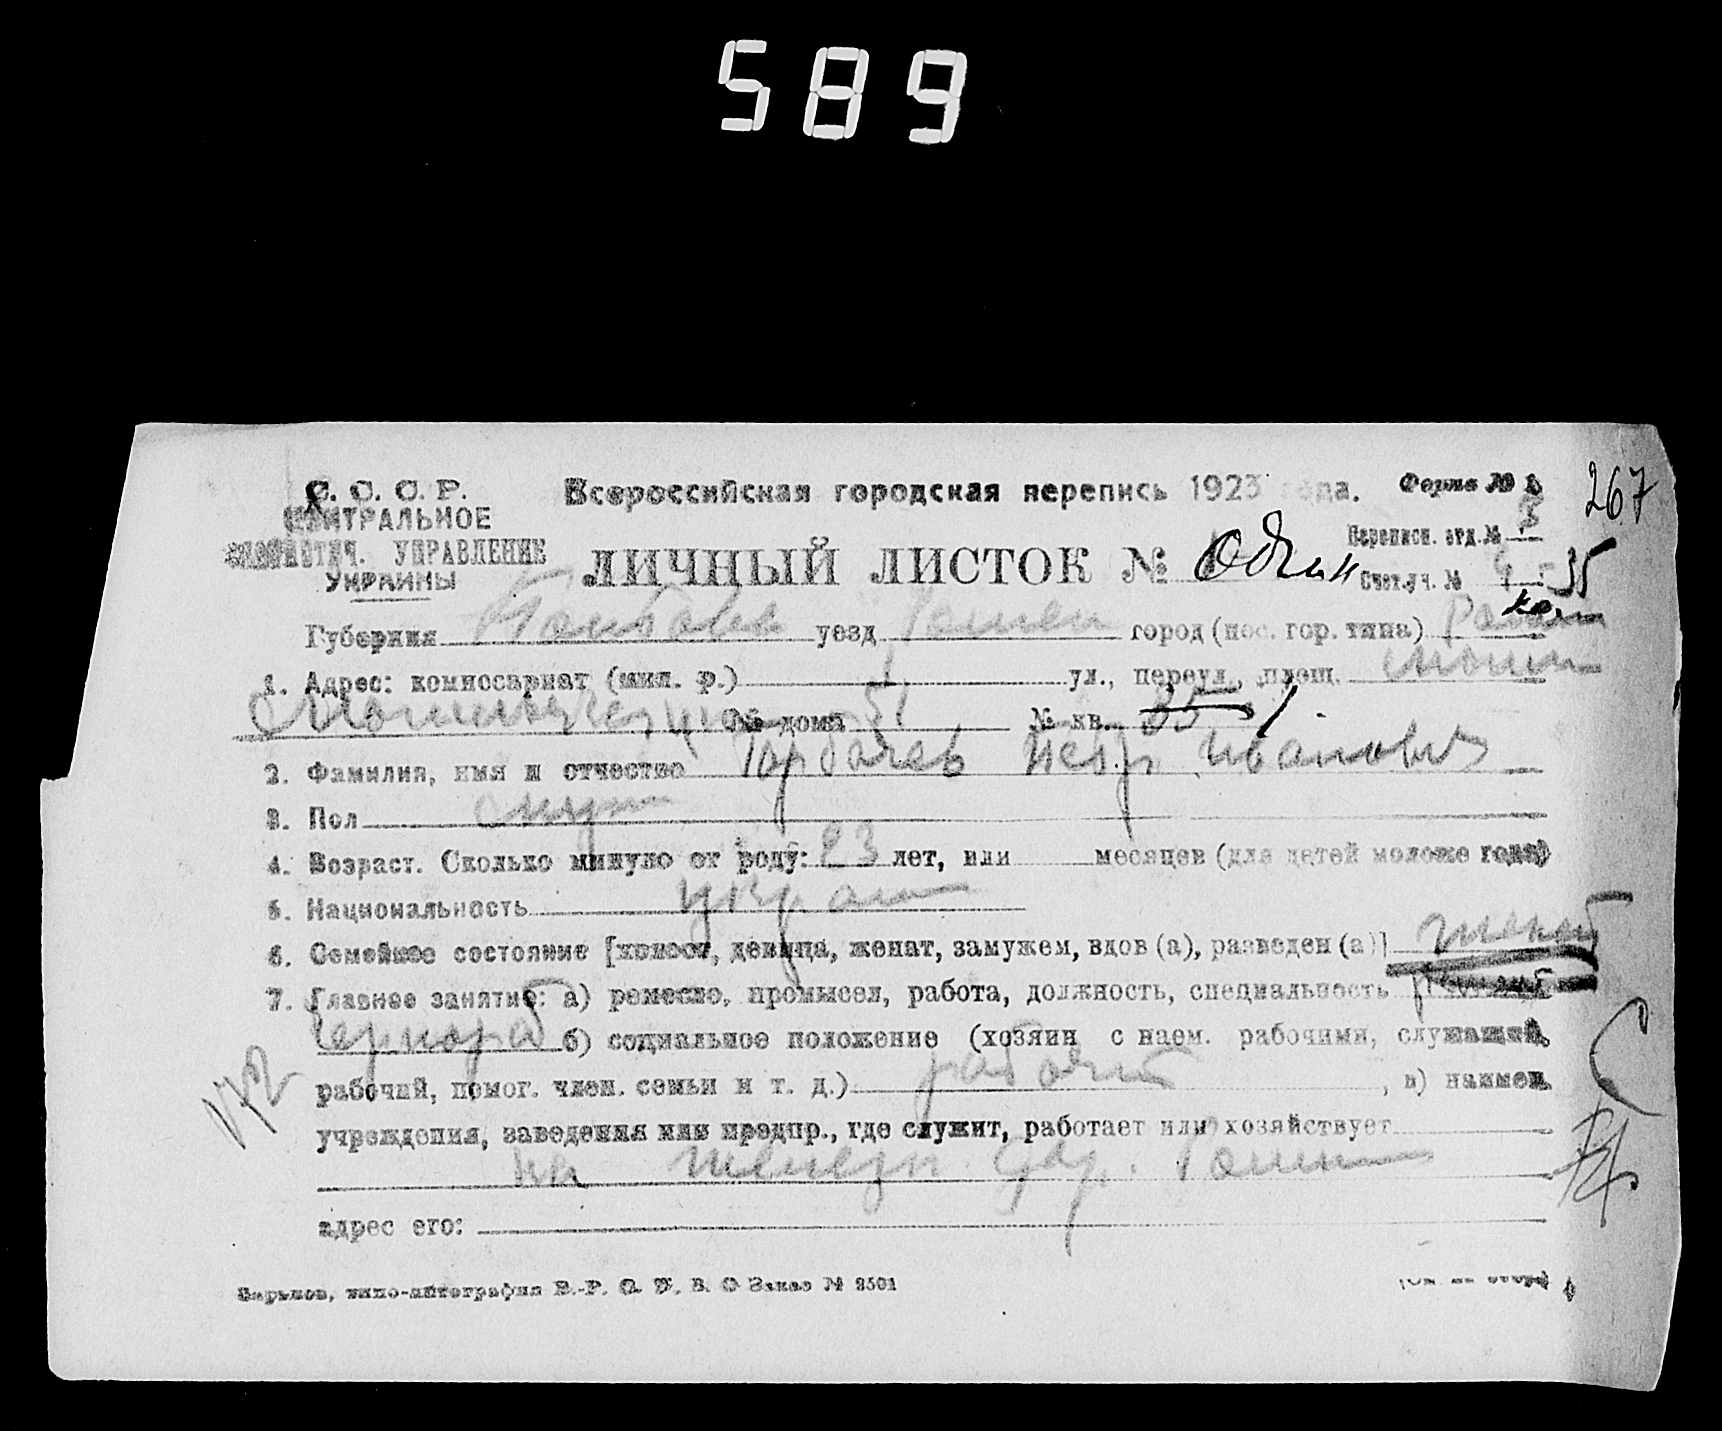 589
267
С. С. С. Р.
ЦЕНТРАЛЬНОЕ
СТАТИСТИЧ. УПРАВЛЕНИЕ
УКРАИНЫ
Всероссийская городская перепись 1923 года.
Форма № 1
Переписн. отд. № 3
ЛИЧНЫЙ ЛИСТОК № Один
Счет. уч. № 35
Губерния Полтава уезд Ромен город (пос. гор. типа)
1. Адрес: комиссариат (мил. р.) ул., переул., площ.
№ дома № кв. 35 1.
2. Фамилия, имя и отчество Горбачев Иванович
3. Пол муж
4. Возраст. Сколько минуло от роду: 23 лет, или месяцев (для детей моложе года)
5. Национальность украин
6. Семейное состояние [холост, девица, женат, замужем, вдов (а), разведен (а)] женат
7. Главное занятие: а) ремесло, промысел, работа, должность, специальность
Чернораб б) социальное положение (хозяин с наем. рабочими, служащий,
рабочий, помог. член. семьи и т. д.) рабочий, в) наимен.
учреждения, заведения или предпр., где служит, работает или хозяйствует
на железн. дор. Ромны
адрес его:
Харьков, типо-литография В.-Р. С. У. В. О Заказ № 2501